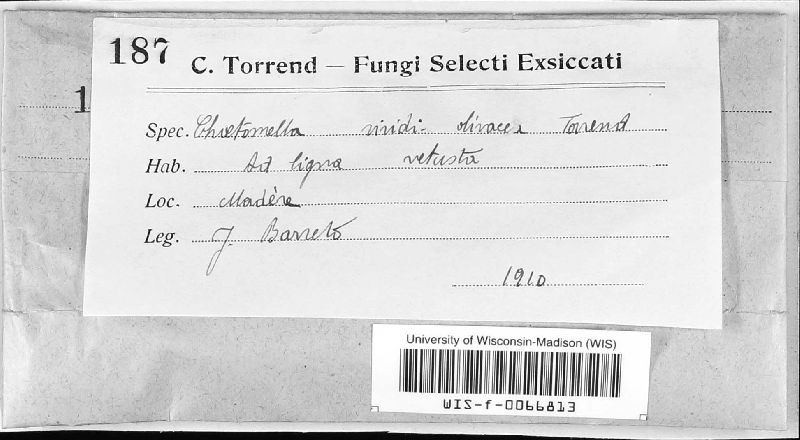 187 C. Torrend — Fungi Selecti Exsiccati
1
Spec. Chætomella viridi-olivacea Torrend
Hab. Ad ligna vetusta
Loc. Madère
Leg. J. Barreto
1910
University of Wisconsin-Madison (WIS)
WIS-f-0066813